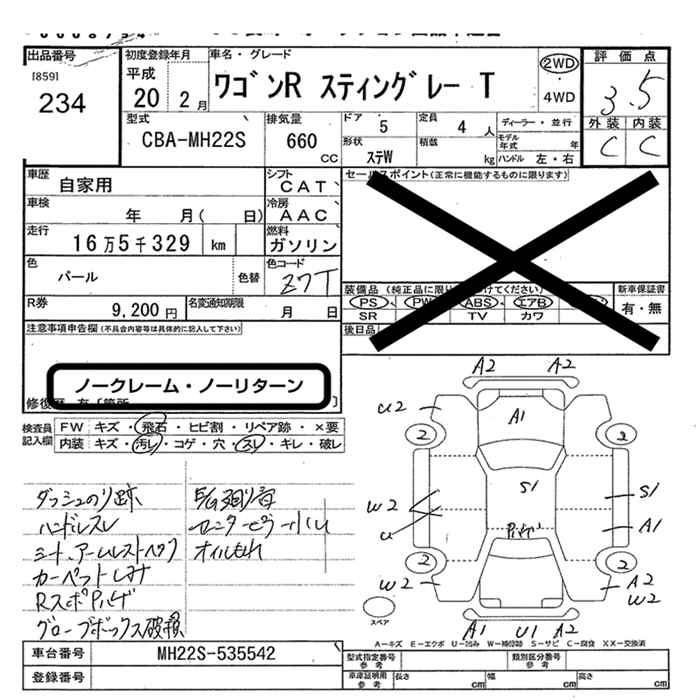 出品番号
[859]
234
初度登録年月
平成
20 2月
車名・グレード
ワゴンR スティングレー T
2WD
4WD
評価点
3.5
外装 内装
C C
型式
CBA-MH22S
排気量
660 CC
ドア
5
定員
4人
ディーラー・並行
形状
ステW
積載
kg
モデル年式 年
ハンドル 左・右
車歴
自家用
シフト
CAT
セールスポイント(正常に機能するものに限ります)
車検
年 月( 日)
冷房
AAC
走行
16万5千329 km
燃料
ガソリン
色
パール
色替
色コード
Z7T
装備品 (純正品に限り
けてください)
新車保証書
PS PW ABS エアB
SR TV カワ
有・無
R券
9,200円
名変通知期限
月 日
後日品
注意事項申告欄 (不具合内容等は具体的に記入して下さい)
ノークレーム・ノーリターン
検査員記入欄
FW キズ・飛石・ヒビ割・リペア跡・×要
内装 キズ・汚レ・コゲ・穴・スレ・キレ・破レ
ダッシュのり跡
ハンドルスレ
シート、アームレスト
カーペットしみ
Rスポ Pハゲ
グローブボックス破損
オイルもれ
A2 A2
U2
A1
2 2
S1
S1
W2
U
A1
Pハゲ
2 2
W2
A2
W2
A1 U1 A2
スペア
A−キズ E−エクボ U−凹み W−補修跡 S−サビ C−腐食 XX−交換済
車台番号
MH22S-535542
登録番号
型式指定番号
参考
類別区分番号
参考
車庫証明用
参考
長さ cm
幅 cm
高さ cm